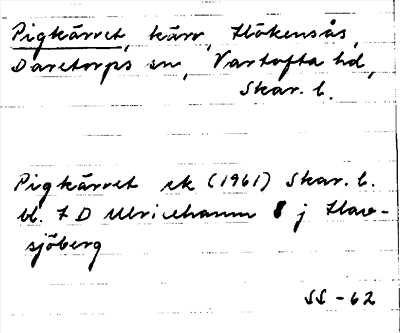 Pigkärret, kärr, Hökensås,
Daretorps sn, Vartofta hd,
Skar. l.
Pigkärret ek (1961) Skar. l.
bl. 7 D Ulricehamn 8 j Hare-
sjöberg
SS -62